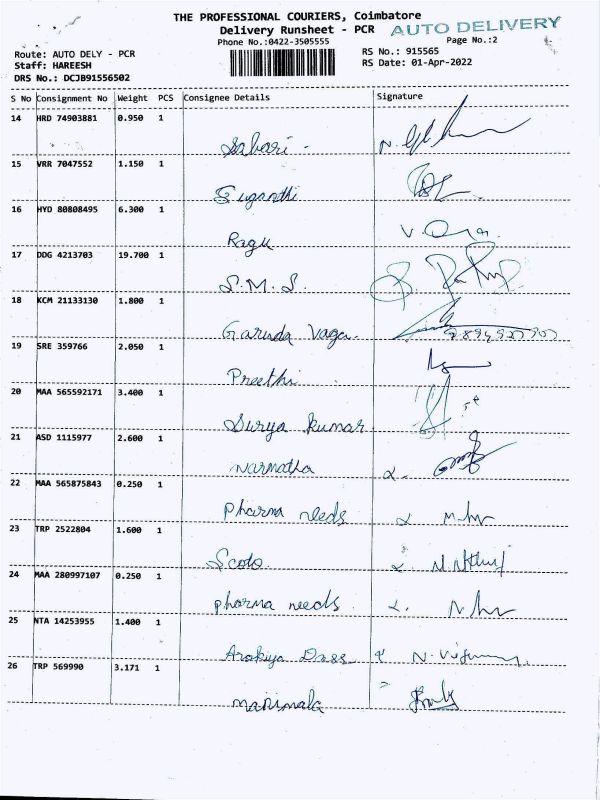 THE PROFESSIONAL COURIERS, Coimbatore
Delivery Runsheet - PCR AUTO DELIVERY
Phone No.:0422-3505555 Page No.:2
Route: AUTO DELY - PCR RS No.: 915565
Staff: HAREESH RS Date: 01-Apr-2022
DRS No.: DCJB91556502
S No Consignment No Weight PCS Consignee Details Signature
14 HRD 74903881 0.950 1
Sabari -
15 VRR 7047552 1.150 1
Sugandhi
16 HYD 80808495 6.300 1
Ragu
17 DDG 4213703 19.700 1
S.M.S.
18 KCM 21133130 1.800 1
Garuda Vega.
19 SRE 359766 2.050 1
Preethi
20 MAA 565592171 3.400 1
Surya kumar
21 ASD 1115977 2.600 1
Narmatha
22 MAA 565875843 0.250 1
Pharma needs
23 TRP 2522804 1.600 1
Scoto.
24 MAA 280997107 0.250 1
pharma needs.
25 NTA 14253955 1.400 1
Arokiya Dass
26 TRP 569990 3.171 1
manimala